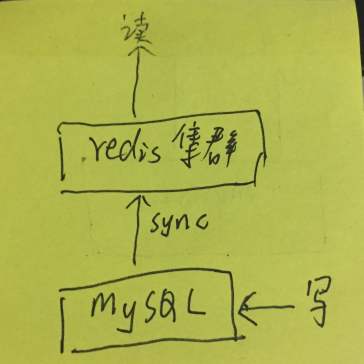 读
redis 集群
sync
MySQL
写